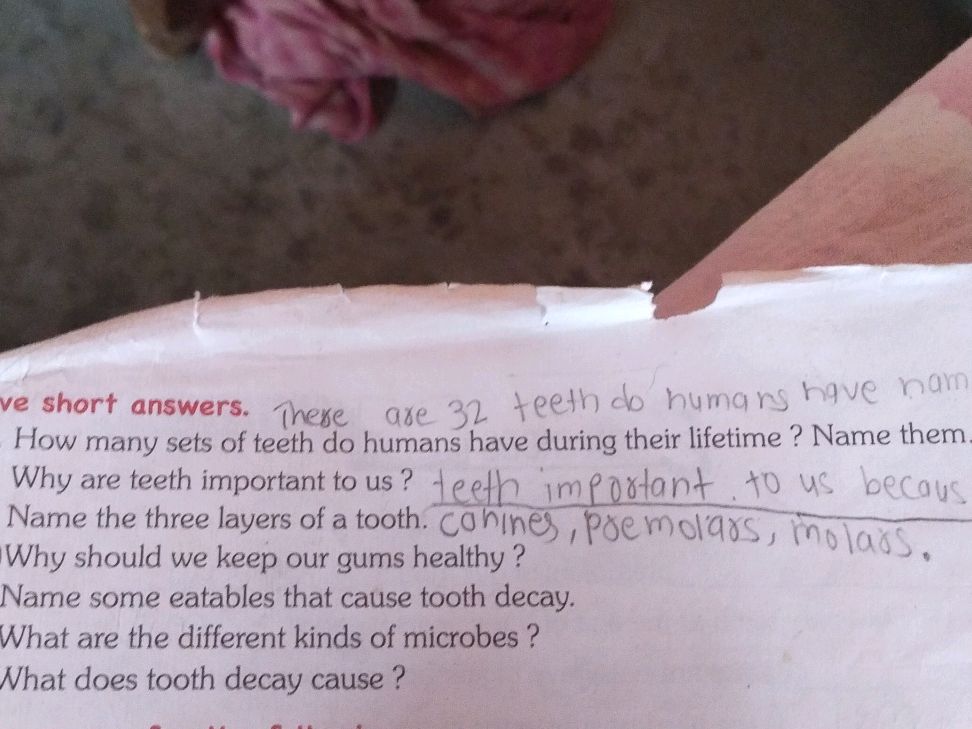 ve short answers. There are 32 teeth do humans have nam
How many sets of teeth do humans have during their lifetime ? Name them.
Why are teeth important to us ? teeth important to us becaus
Name the three layers of a tooth. canines, premolars, molars.
Why should we keep our gums healthy ?
Name some eatables that cause tooth decay.
What are the different kinds of microbes ?
What does tooth decay cause ?